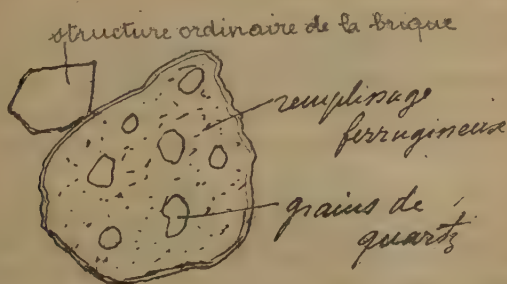 structure ordinaire de la brique
remplissage
ferrugineuse
grains de
quartz